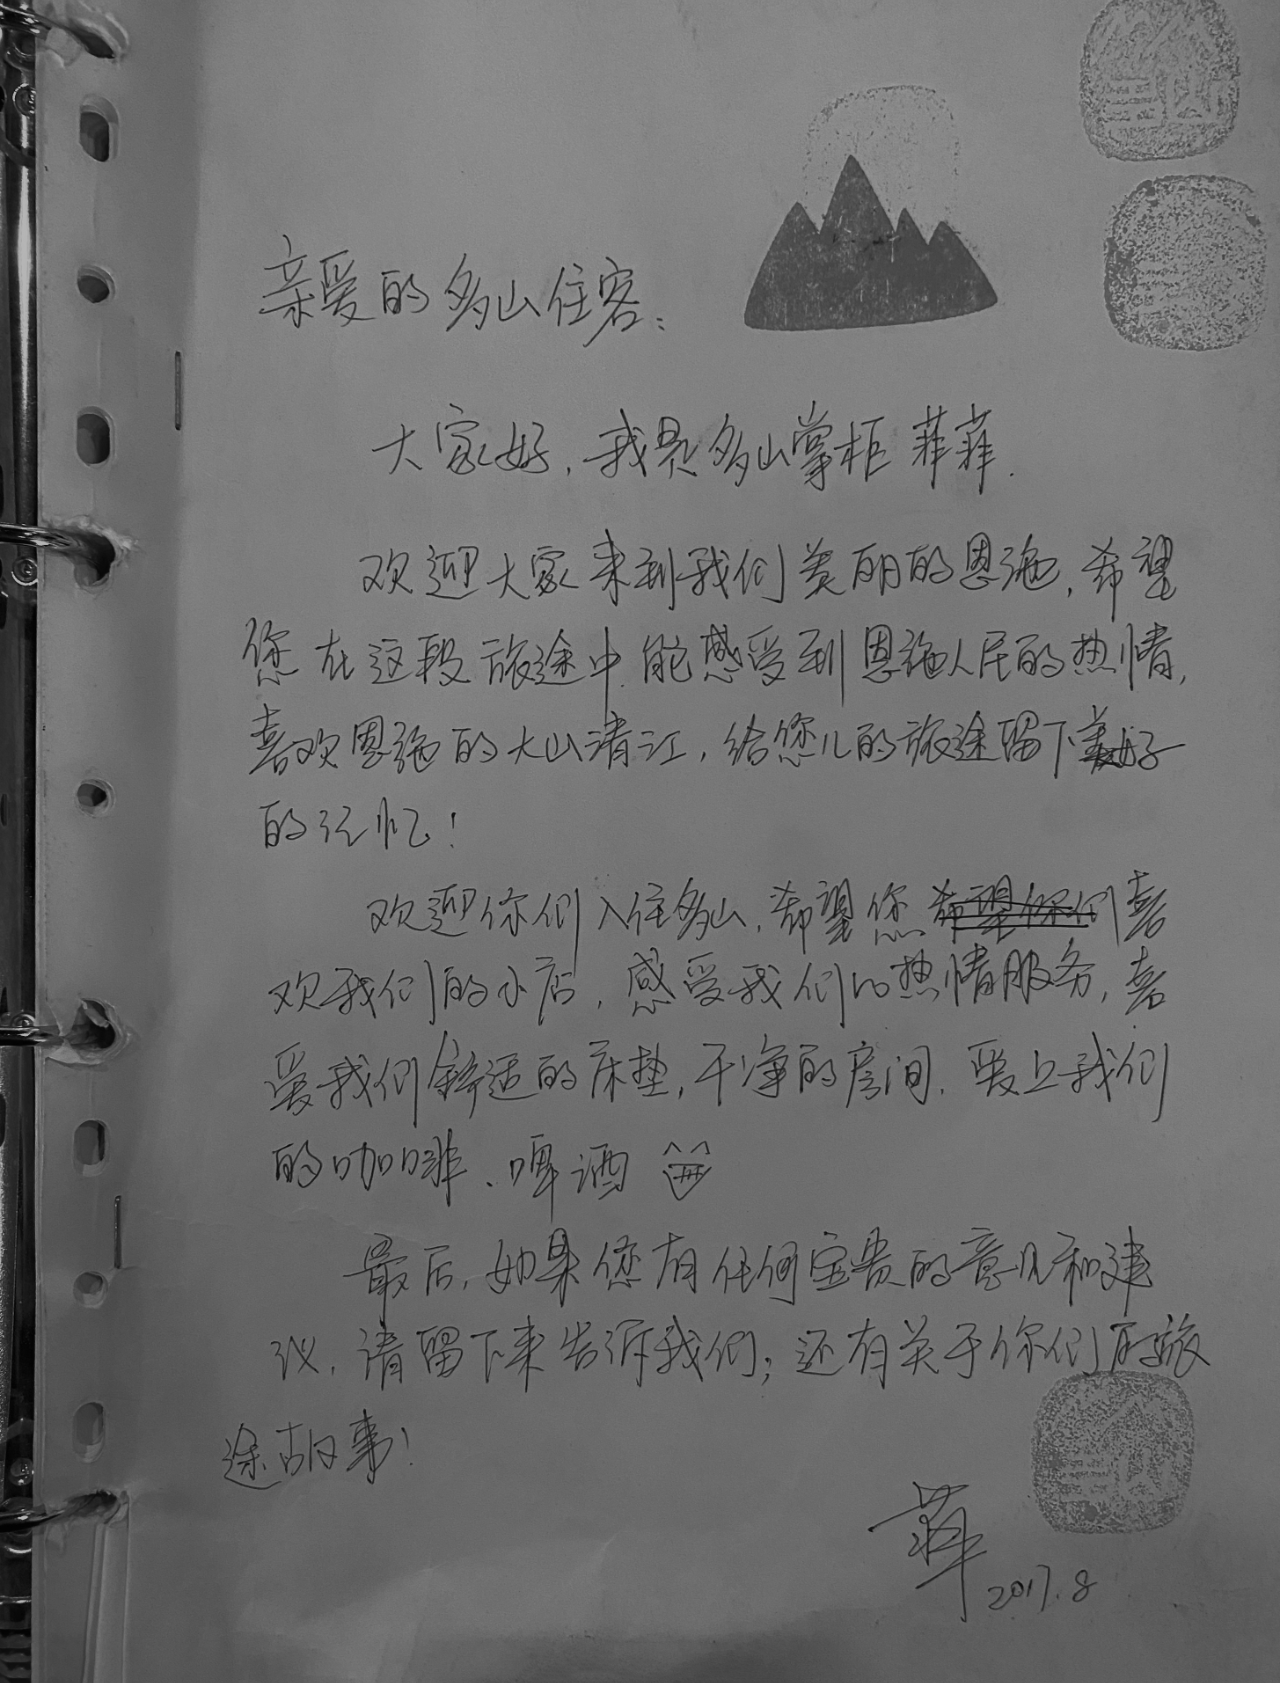 亲爱的多山住客：
大家好，我是多山掌柜菲菲.
欢迎大家来到我们美丽的恩施，希望
您在这段旅途中能感受到恩施人民的热情，
喜欢恩施的大山清江，给您儿的旅途留下美好
的记忆！
欢迎你们入住多山，希望您喜
欢我们的小店，感受我们的热情服务，喜
爱我们舒适的床垫，干净的房间，爱上我们
的咖啡、啤酒
最后，如果您有任何宝贵的意见和建
议，请留下来告诉我们；还有关于你们的旅
途故事！
菲
2017.8